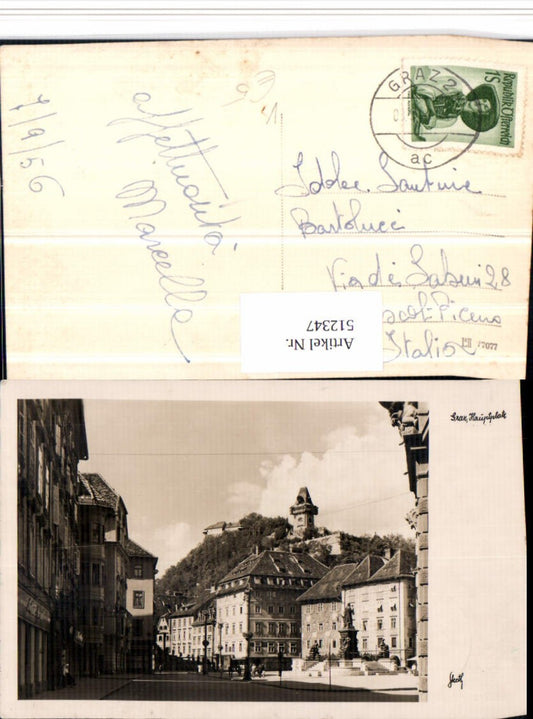 7/9/56
affettuosità
Marcello
GRAZ 2
ac
1S
Republik Österreich
Bartolucci
Via dei Sabini 28
Ascoli Piceno
Italia
Artikel Nr.
512347
Graz, Hauptplatz